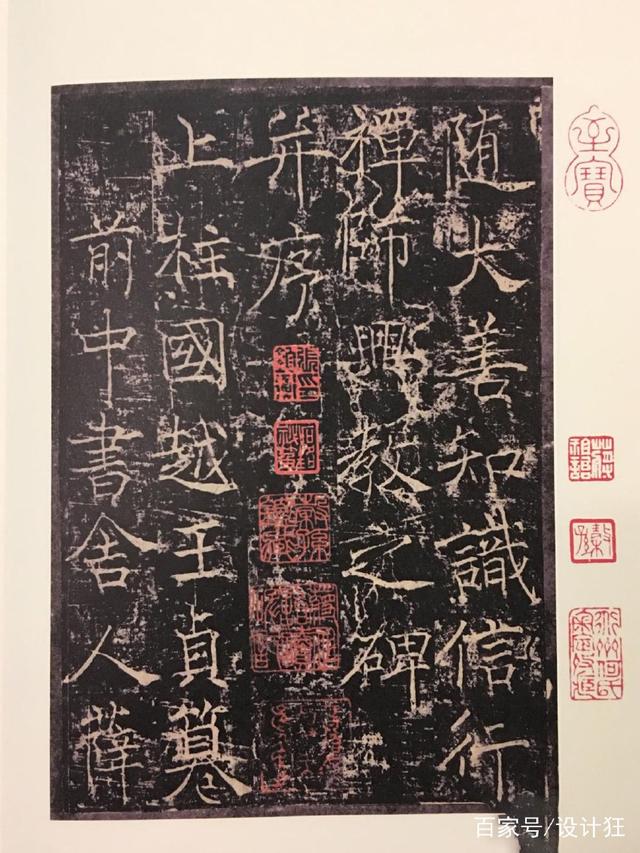 随大善知識信行
禪師興教之碑
并序
上柱國越王貞篹
前中書舍人薛
至寶
百家号/设计狂